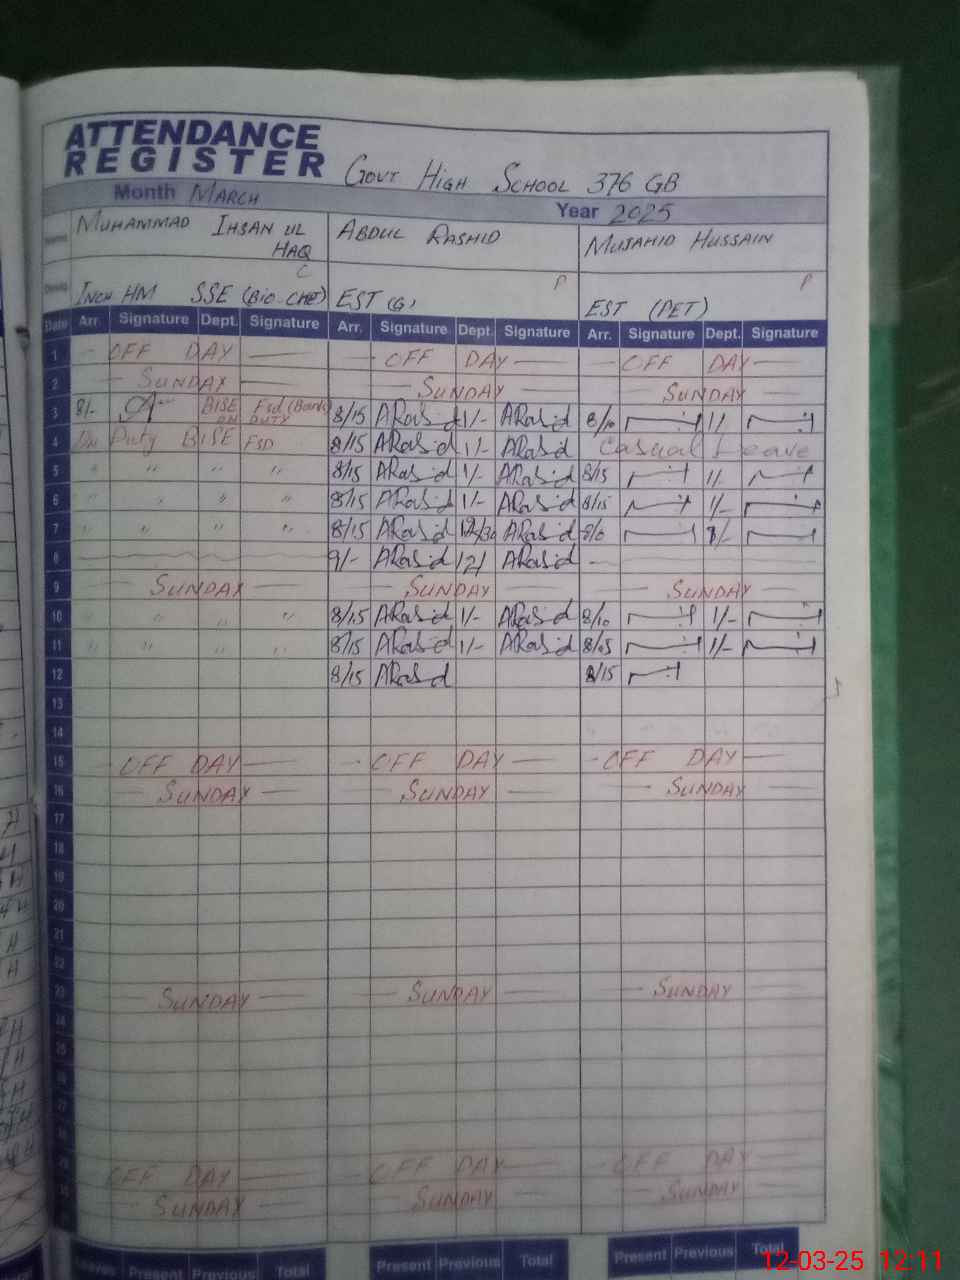 ATTENDANCE
REGISTER
GOVT HIGH SCHOOL 376 GB
Month MARCH
Year 2025
MUHAMMAD IHSAN UL HAQ ABDUL RASHID MUJAHID HUSSAIN
C P P
INCH HM SSE (BIO-CHE) EST (G) EST (PET)
Date Arr. Signature Dept. Signature Arr. Signature Dept. Signature Arr. Signature Dept. Signature
1 OFF DAY OFF DAY OFF DAY
2 SUNDAY SUNDAY SUNDAY
3 8/- BISE ON Fsd (Board) DUTY 8/15 ARashid 1/- ARashid 8/10 1/-
4 On Duty BISE FSD 8/15 ARashid 1/- ARashid Casual Leave
5 " " " " 8/15 ARashid 1/- ARashid 8/15 1/-
6 " " " " 8/15 ARashid 1/- ARashid 8/15 1/-
7 " " " " 8/15 ARashid 12/30 ARashid 1/-
8 9/- ARashid 12/ ARashid
9 SUNDAY SUNDAY SUNDAY
10 " " " " 8/15 ARashid 1/- ARashid 8/10 1/-
11 " " " " 8/15 ARashid 1/- ARashid 1/-
12 8/15 ARashid 8/15
13
14
15 OFF DAY OFF DAY OFF DAY
16 SUNDAY SUNDAY SUNDAY
17
18
19
20
21
22
23 SUNDAY SUNDAY SUNDAY
24
25
26
27
OFF DAY OFF DAY OFF DAY
SUNDAY SUNDAY SUNDAY
Leaves Present Previous Total Present Previous Total Present Previous Total
12-03-25 12:11